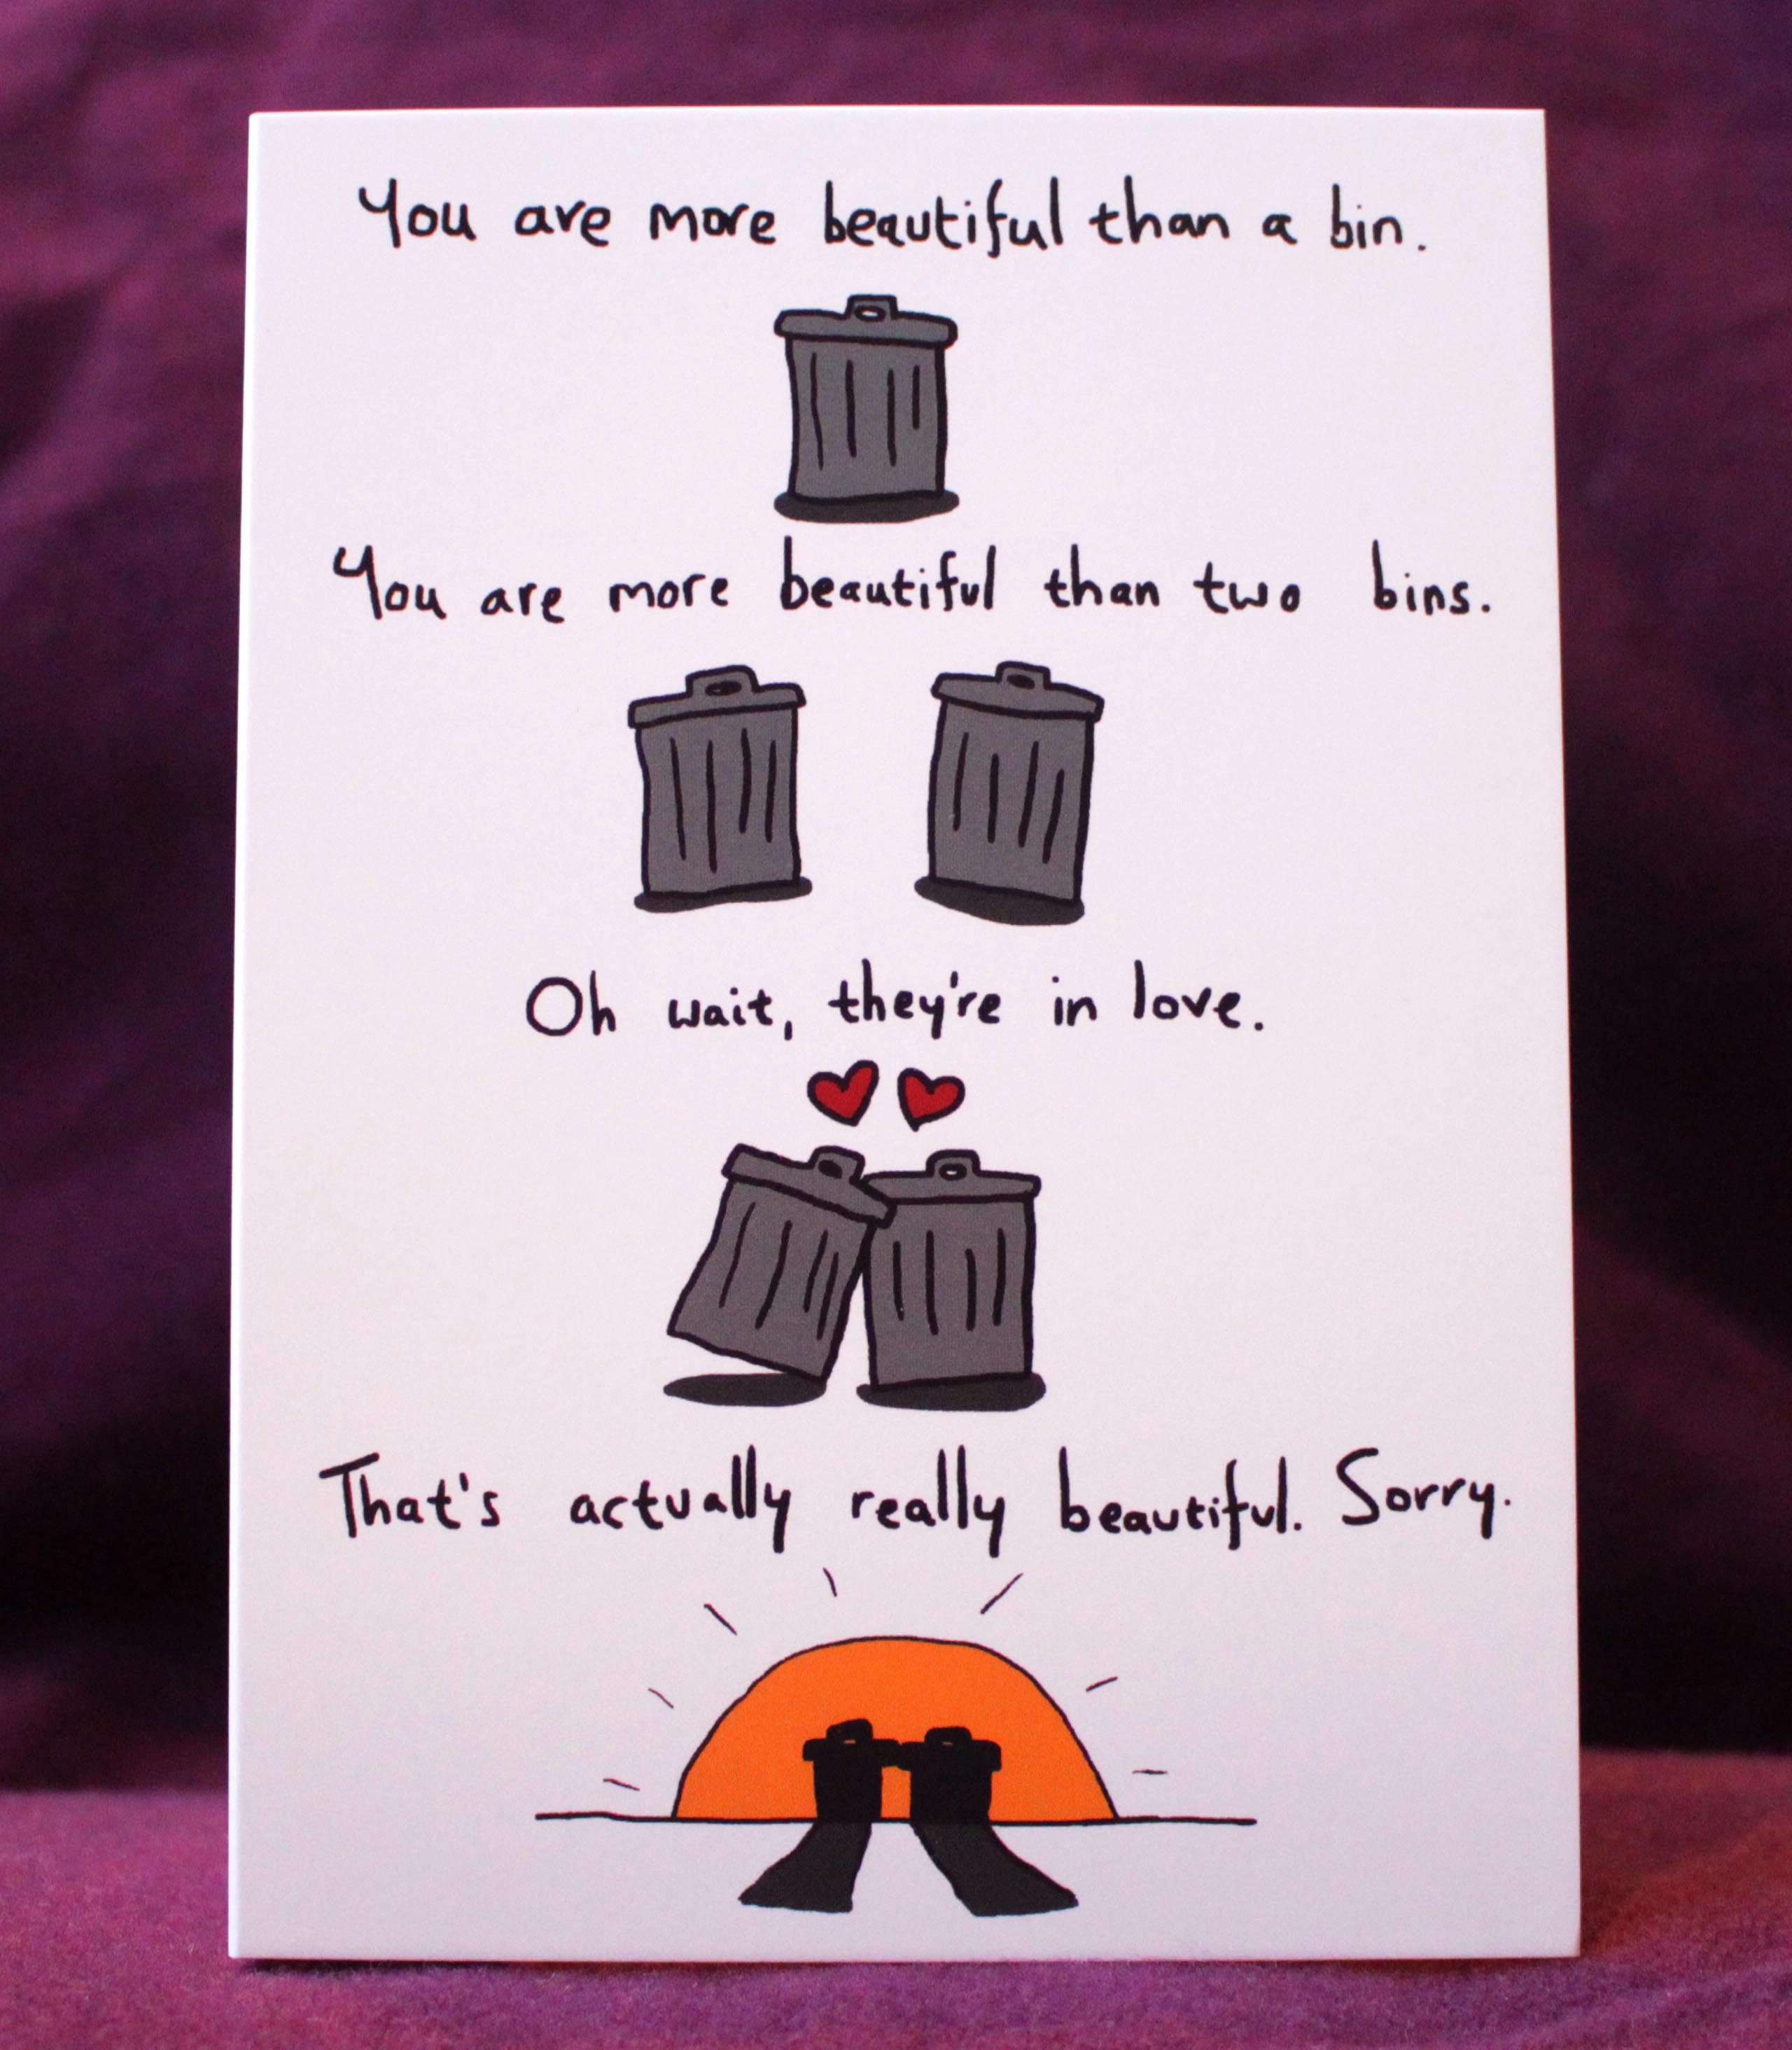 You are more beautiful than a bin.
You are more beautiful than two bins.
Oh wait, they're in love.
That's actually really beautiful. Sorry.